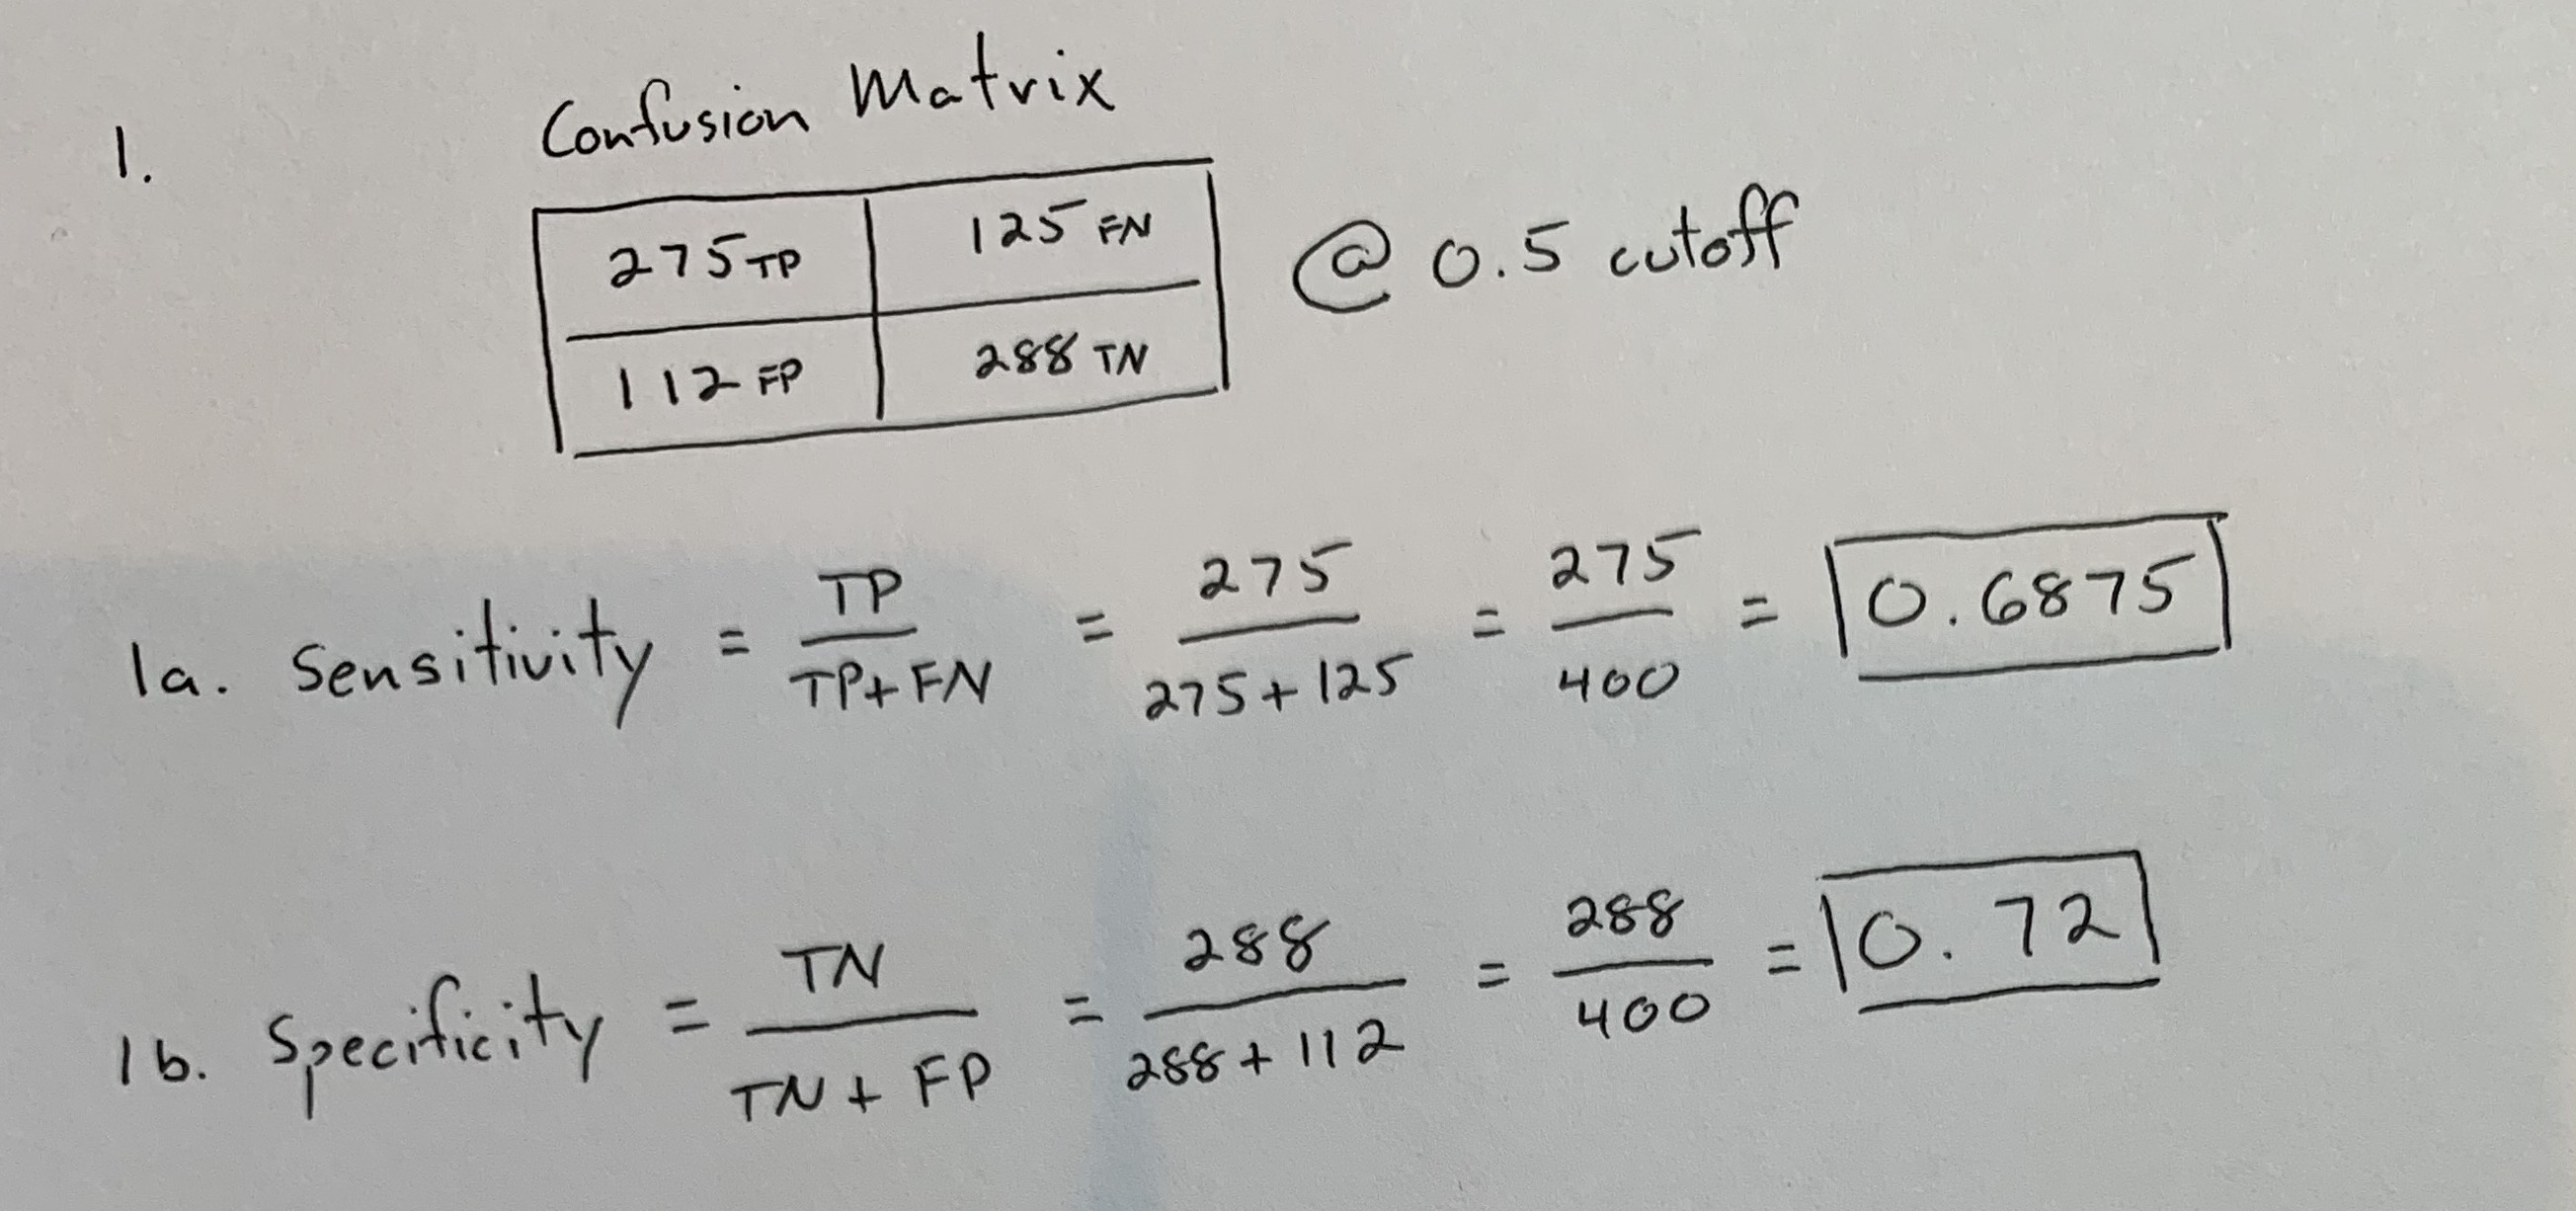 1. Confusion Matrix
275 TP 125 FN @ 0.5 cutoff
112 FP 288 TN
1a. Sensitivity = TP / TP+FN = 275 / 275+125 = 275 / 400 = 0.6875
1b. Specificity = TN / TN + FP = 288 / 288+112 = 288 / 400 = 0.72